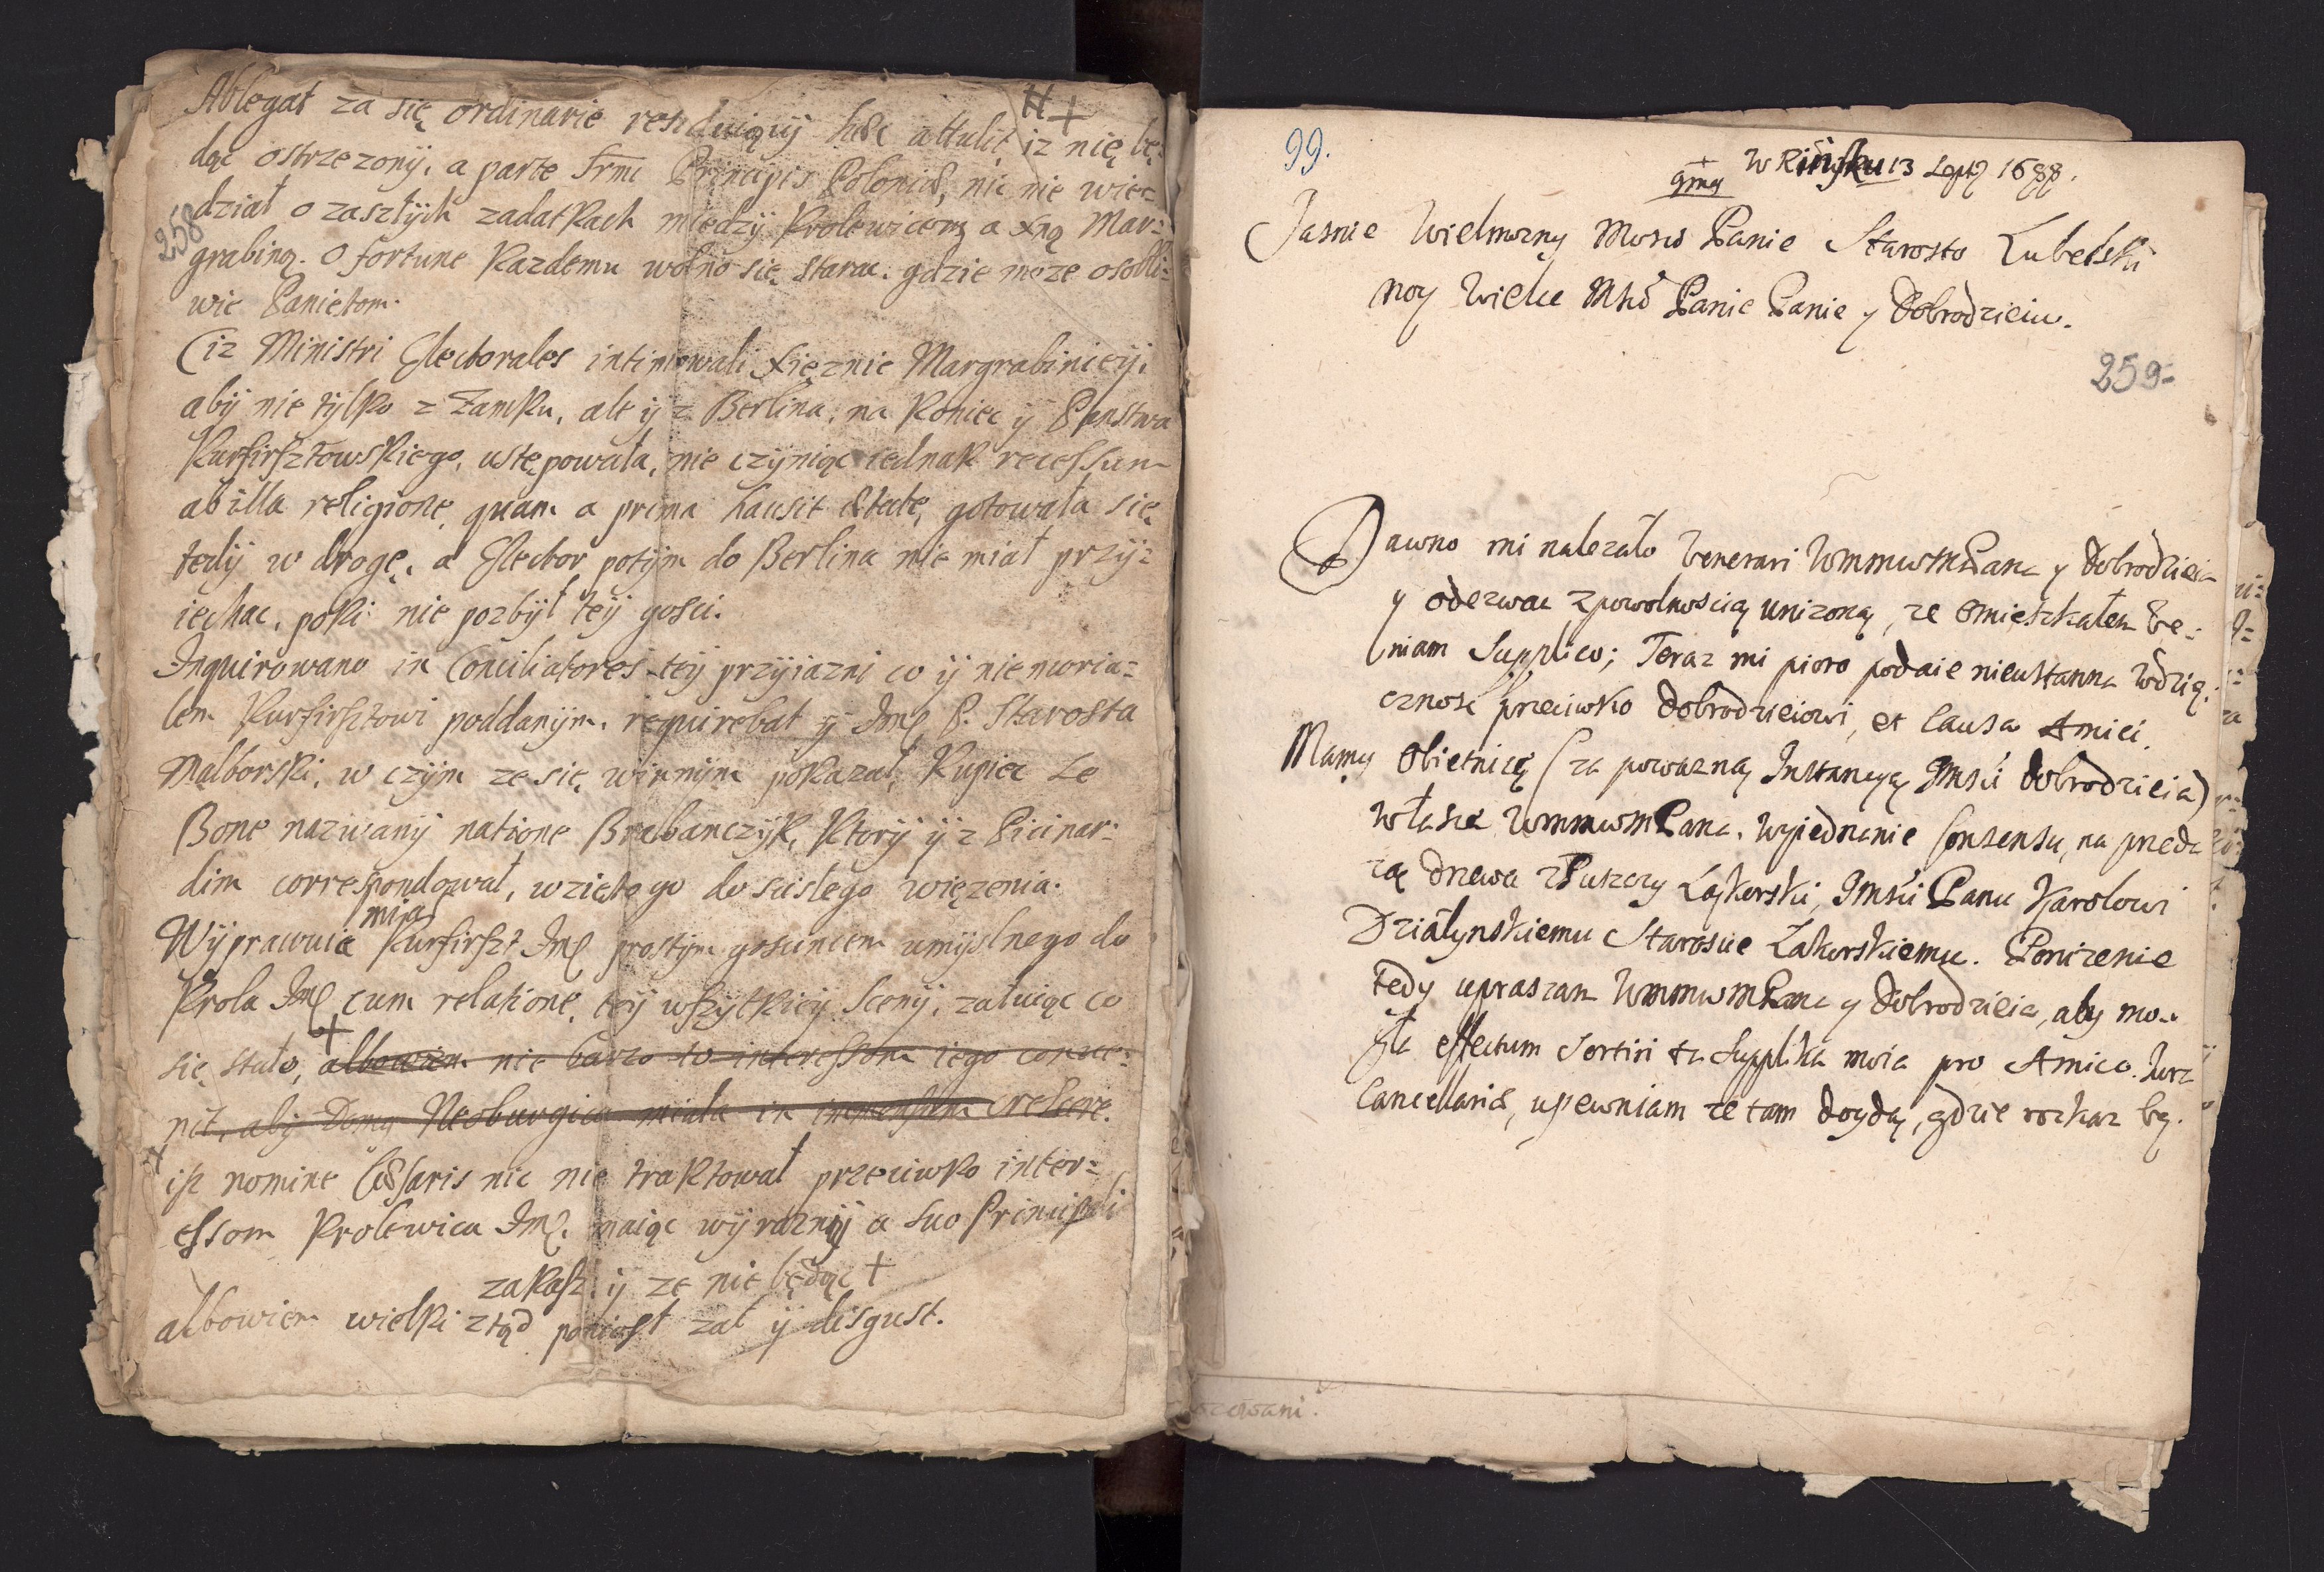 Ablegat za się ordinarie residuiąyÿ hæc attulit, iz nię bę-
dąc ostrzezonÿ, a parte Srmi Principis Poloniæ, nic nie wie-
dział o zaszłÿch zadatkach miedzÿ Krolewicem a Xną Mar=
258
grabiną. O fortune Kazdemu wolno się starac. gdzie moze osobli=
wie Panietom.
Ciz Ministri Electorales intimowali Xięznie Margrabinieÿ,
abÿ nie tÿlko z Zamku, ale ÿ z Berlina, na koniec ÿ Panstwa
Kurfirsztowskiego, ustępowała, nie czÿniąc iednak recessum
ab illa religione, quam a prima hausit ætate, gotowała się
tedÿ w drogę, a Elector potÿm do Berlina nie miał przÿ=
iechac, poki nie pozbÿł teÿ gosci.
Inquirowano in Conciliatores teÿ przÿiazni co ÿ niemoria=
lem Kurfirsztowi poddanÿm, requirebat ÿ Jmc P. Starosta
Malborski, w czÿm ze się winnÿm pokazał, Kupiec Le
Bone nazwanÿ natione Brabanczÿk, Ktorÿ ÿ z Picinar-
dim correspondował, wzięto go do scisłego więzenia.
mię
Wÿprawuie Kurfirszt Jmc prostÿm goscincem umÿslnego do
Krola Jmc cum relatione, teÿ wszÿtkieÿ Scenÿ, załuiąc co
się stało, albowiem nie barzo to interessom iego conue-
nit, abÿ Domus Neoburgica miała in immensum crescere.
isz nomine Cæsaris nic nie traktował przeciwko inter=
essom Krolewica Jmc. maiąc wÿraznÿ a suo Principali
zakasz ÿ ze nie będąc +
albowiem wielki ztąd poniosł zal ÿ disgust.
99.
W Rińsku 13 Septę 1688.
Jasnie Wielmozny Mosci Panie Starosto Lubelski
moy Wielce Mści Panie Panie y Dobrodzieiu.
259-
Dawno mi nalezało Venerari WmmwmPana y Dobrodzieia
y odezwac z powolnoscią unizoną, ze omieszkałem Ve-
niam Supplico; Teraz mi pioro podaie nieustanna Wdzię-
cznosc przeciwko Dobrodzieiowi, et Causa Amici.
Mamy obietnicę (za powazną Instancyą Jmści dobrodzieia)
w łasce WmmwmPana. Wyiednanie Consensu, na przeda
zą drzewa z Puszczy Łąkorski, Jmści Panu Karolowi
Działynskiemu Staroscie Łąkorskiemu. Ponizenie
tedy upraszam WmmwmPana y Dobrodzieia, aby mo-
gła effectum sortiri ta Supplika moia pro Amico. Jura
Cancellariæ, upewniam ze tam doydą, gdzie rozkaz bę-